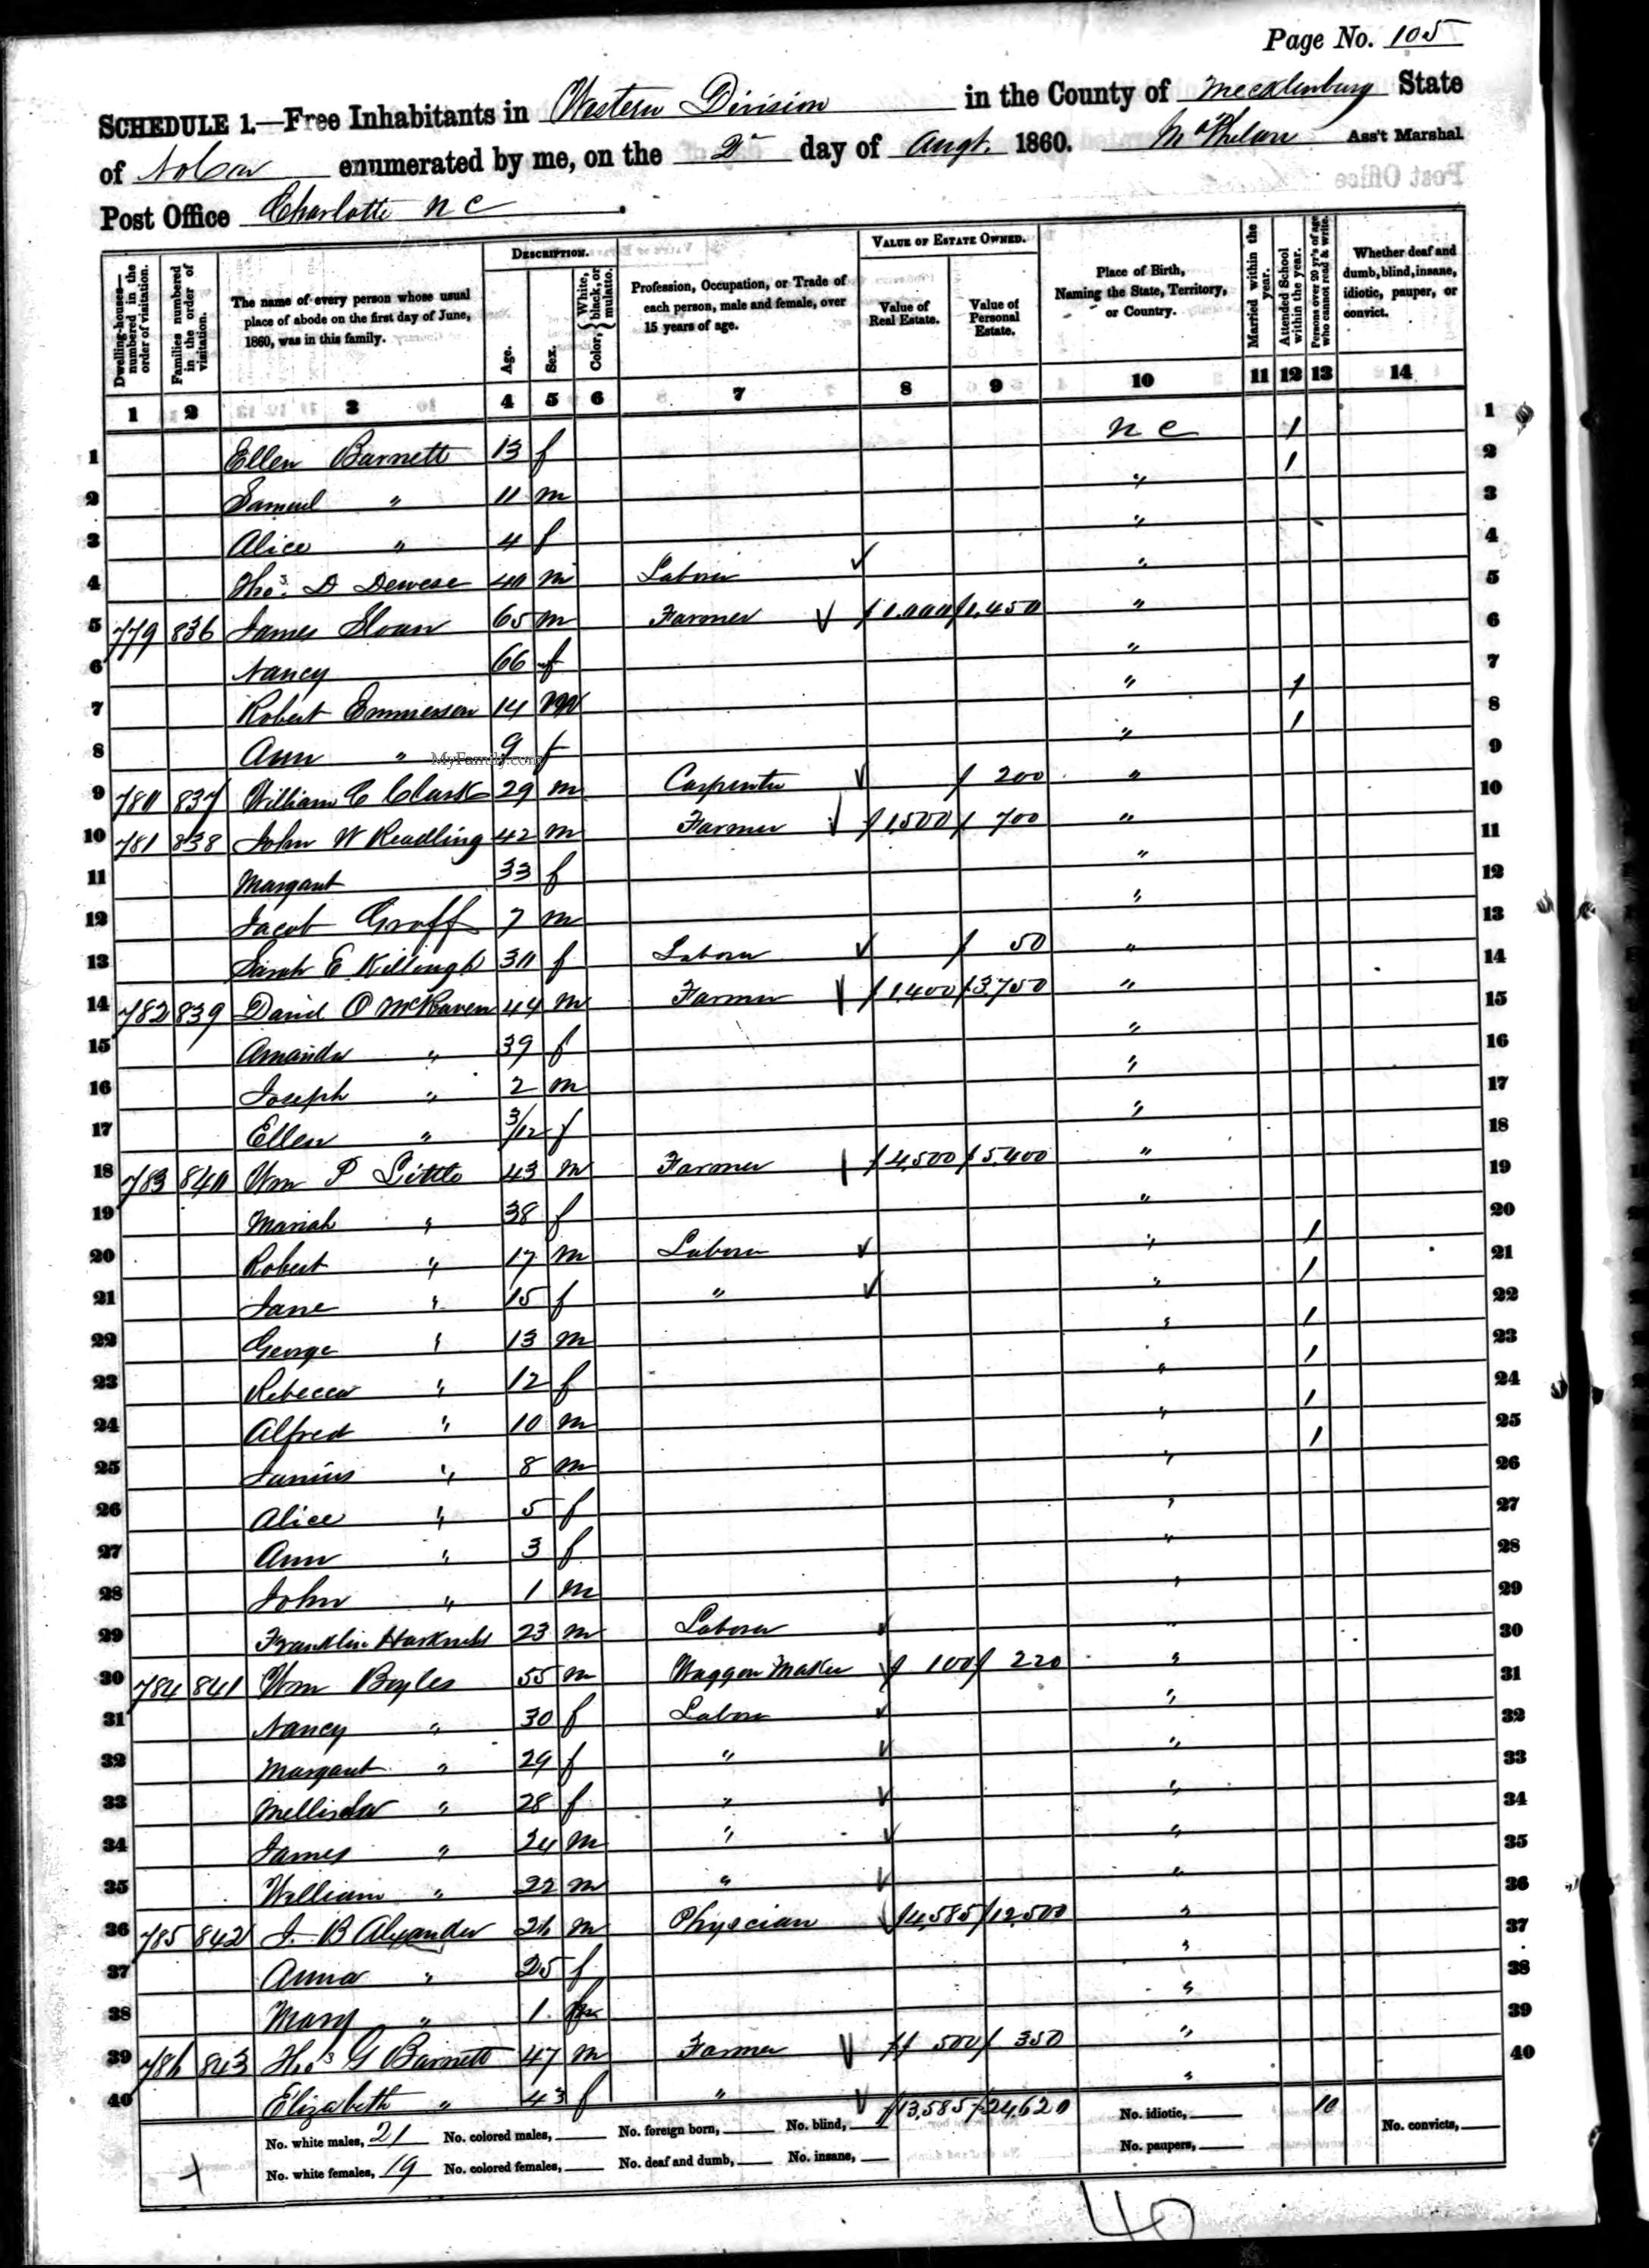 Page No. 105
SCHEDULE 1.—Free Inhabitants in Western Division in the County of Mecklenburg State
of No Car enumerated by me, on the 2d day of Augt. 1860. Ass't Marshal
Post Office Charlotte N C
Dwelling-houses—numbered in the order of visitation.
Families numbered in the order of visitation.
The name of every person whose usual place of abode on the first day of June, 1860, was in this family.
DESCRIPTION.
Age.
Sex.
Color, { White, black, or mulatto.
Profession, Occupation, or Trade of each person, male and female, over 15 years of age.
VALUE OF ESTATE OWNED.
Value of Real Estate.
Value of Personal Estate.
Place of Birth, Naming the State, Territory, or Country.
Married within the year.
Attended School within the year.
Persons over 20 y'rs of age who cannot read & write.
Whether deaf and dumb, blind, insane, idiotic, pauper, or convict.
1 2 3 4 5 6 7 8 9 10 11 12 13 14
1 Ellen Barnett 13 f N C 1 1
2 Samuel " 11 m " 1 2
3 Alice " 4 f " 3
4 Thos. D Dewese 40 m Laborer " 4
5 779 836 James Sloan 65 m Farmer 1,000 1,450 " 5
6 Nancy 66 f " 6
7 Robert Emmerson 14 m " 1 7
8 Ann " 9 f " 1 8
MyFamily.com
9 780 837 William C Clark 29 m Carpenter 200 " 9
10 781 838 John W Readling 42 m Farmer 1,500 700 " 10
11 Margaret 33 f " 11
12 Jacob Groff 7 m " 12
13 Sarah E Killough 30 f Laborer 50 " 13
14 782 839 David O McRaven 44 m Farmer 1,400 3,750 " 14
15 Amanda " 39 f " 15
16 Joseph " 2 m " 16
17 Ellen " 3/12 f " 17
18 783 840 Wm P Little 43 m Farmer 4,500 5,400 " 18
19 Mariah " 38 f " 19
20 Robert " 17 m Laborer " 1 20
21 Jane " 15 f " " 1 21
22 George " 13 m " 1 22
23 Rebecca " 12 f " 1 23
24 Alfred " 10 m " 1 24
25 Junius " 8 m " 1 25
26 Alice " 5 f " 26
27 Ann " 3 f " 27
28 John " 1 m " 28
29 Franklin 23 m Laborer " 29
30 784 841 Wm Boyles 55 m Waggon Maker 100 220 " 30
31 Nancy " 30 f Labor " 31
32 Margaret " 29 f " " 32
33 Mellisda " 28 f " " 33
34 James " 24 m " " 34
35 William " 22 m " " 35
36 785 842 J. B Alexander 26 m Physcian 4,585 12,500 " 36
37 Anna " 25 f " 37
38 Mary " 1 " 38
39 786 843 Thos G Barnett 47 m Farmer 500 350 " 39
40 Elizabeth " 43 f " " 40
13,585 24,620 10
No. white males, 21 No. colored males, No. foreign born, No. blind, No. idiotic, No. convicts,
No. white females, 19 No. colored females, No. deaf and dumb, No. insane, No. paupers,
40